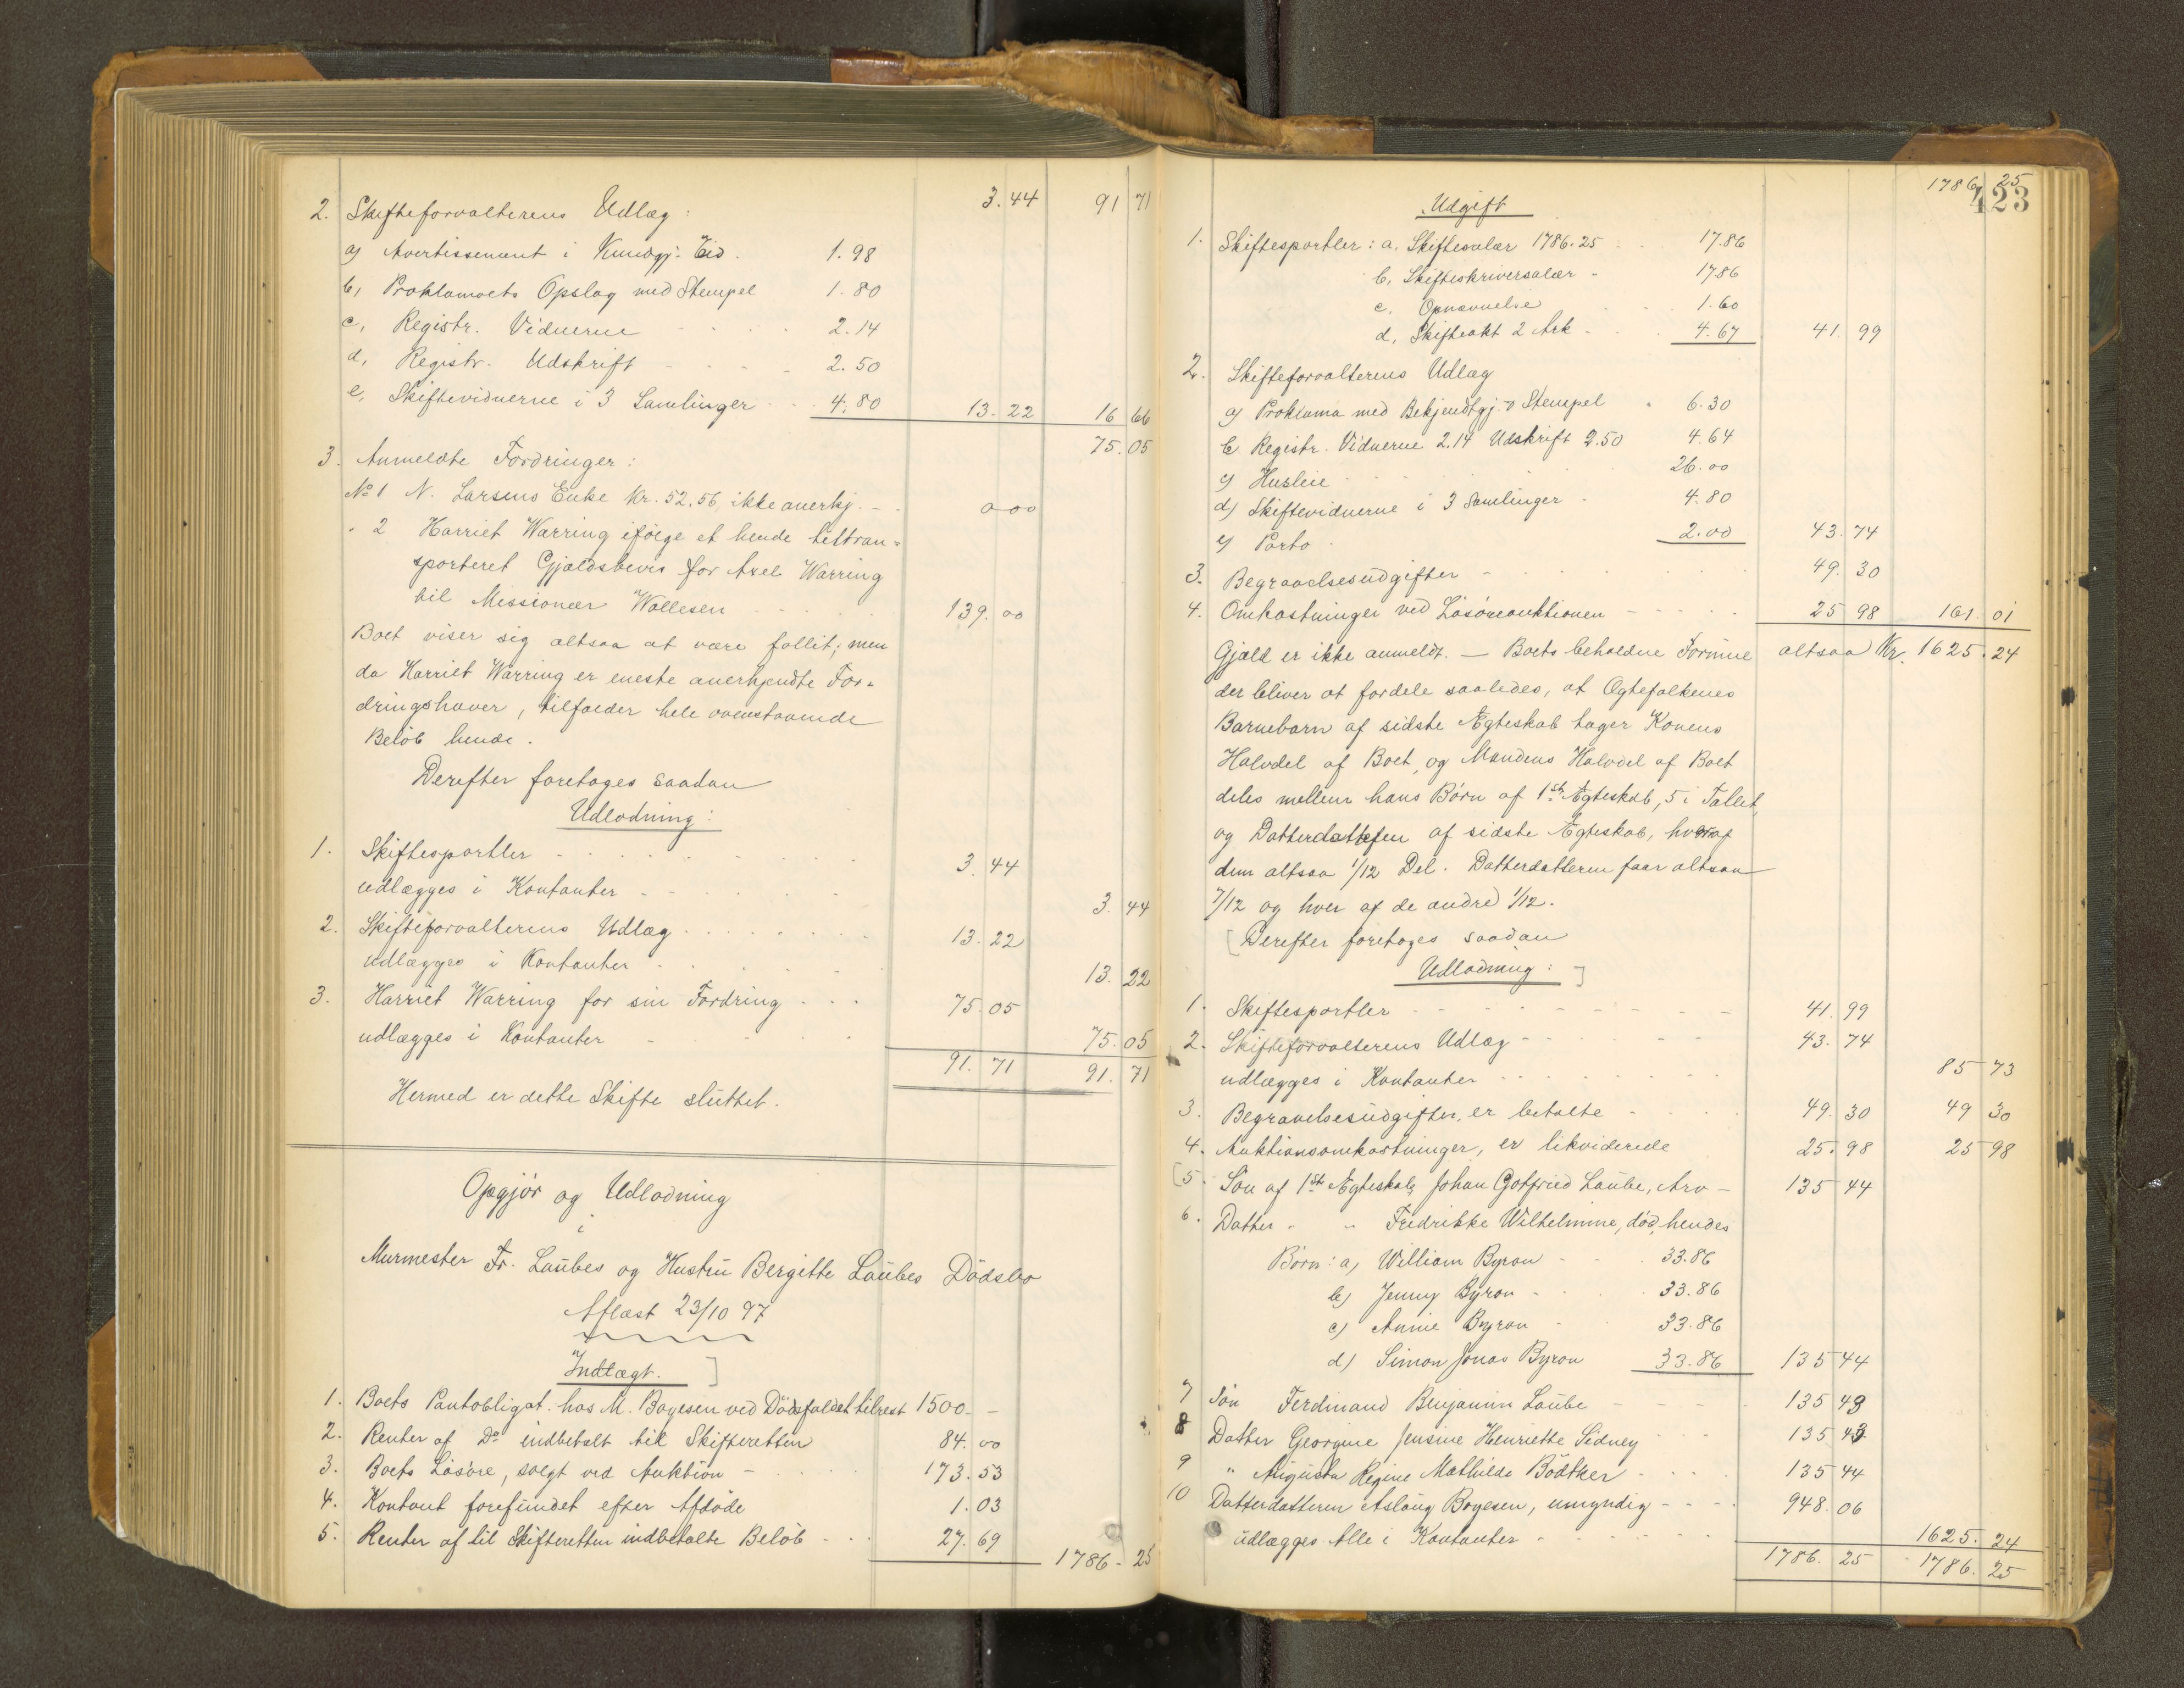 2. Skifteforvalterens Udlæg: 3.44 91 71
a) Avertissement i Kundgj. Tid. 1.98
b, Proklamaets Opslag med Stempel 1.80
c, Registr. Vidnerne 2.14
d, Registr. Udskrift 2.50
e, Skiftevidnerne i 3 Samlinger 4.80 13.22 16 66
75.05
3. Anmeldte Fordringer:
No 1 N. Larsens Enke Kr. 52.56, ikke anerkj. 0 00
" 2 Harriet Warring ifølge et hende tiltran-
sporteret Gjældsbevis for Axel Warring
til Missionær Wollesen 139.00
Boet viser sig altsaa at være fallit; men
da Harriet Warring er eneste anerkjendte For-
dringshaver, tilfalder hele ovenstaaende
Beløb hende.
Derefter foretages saadan
Udlodning:
1. Skiftesportler 3.44
udlægges i Kontanter 3.44
2. Skifteforvalterens Udlæg 13.22
udlægges i Kontanter 13.22
3. Harriet Warring for sin Fordring 75.05
udlægges i Kontanter 75.05
91.71 91.71
Hermed er dette Skifte sluttet.
Opgjør og Udlodning
i
Murmester Fr. Laubes og Hustru Bergitte Laubes Dødsbo
Aflæst 23/10 97
Indtægt. ]
1. Boets Pantobligat. hos M. Boyesen ved Dødsfaldet tilrest 1500. -
2. Renter af Do indbetalt til Skifteretten 84.00
3. Boets Løsøre, solgt ved Auktion 173.53
4. Kontant forefundet efter Afdøde 1.03
5. Renter af til Skifteretten indbetalte Beløb 27.69 1786.25
1786 25
423
Udgift
1. Skiftesportler: a, Skiftesalær 1786.25 17.86
b, Skifteskriversalær 17.86
c. Opnævnelse 1.60
d, Skifteakt 2 Ark 4.67 41.99
2. Skifteforvalterens Udlæg
a) Proklama med Bekjendtgj. o Stempel 6.30
b Registr. Vidnerne 2.14 Udskrift 2.50 4.64
c) Husleie 26.00
d) Skiftevidnerne i 3 Samlinger 4.80
e) Porto 2.00 43.74
3. Begravelsesudgifter 49.30
4. Omkostninger ved Løsøreauktionen 25 98 161.01
Gjæld er ikke anmeldt. — Boets beholdne Formue altsaa Kr. 1625.24
der bliver at fordele saaledes, at Ægtefolkenes
Barnebarn af sidste Ægteskab tager Konens
Halvdel af Boet, og Mandens Halvdel af Boet
deles mellem hans Børn af 1ste Ægteskab, 5 i Tallet,
og Datterdatteren af sidste Ægteskab, hver af
dem altsaa 1/12 Del. Datterdatteren faar altsaa
7/12 og hver af de andre 1/12.
[ Derefter foretages saadan
Udlodning: ]
1. Skiftesportler 41.99
2. Skifteforvalterens Udlæg 43.74
udlægges i Kontanter 85 73
3. Begravelsesudgifter, er betalte 49.30 49 30
4. Auktionsomkostninger, er likviderede 25.98 25 98
[5. Søn af 1ste Ægteskab, Johan Gotfried Laube, Arv 135 44
6. Datter " " Fredrikke Wilhelmine, død, hendes
Børn: a) William Byron 33.86
b) Jenny Byron 33.86
c) Annie Byron 33.86
d) Simon Jonas Byron 33.86 135 44
7 Søn Ferdinand Benjamin Laube 135 43
8 Datter Georgine Jensine Henriette Sidney 135 43
9 " Augusta Regine Mathilde Bödtker 135 44
10 Datterdatteren Aslaug Boyesen, umyndig 948.06
udlægges Alle i Kontanter 1625.24
1786.25 1786.25